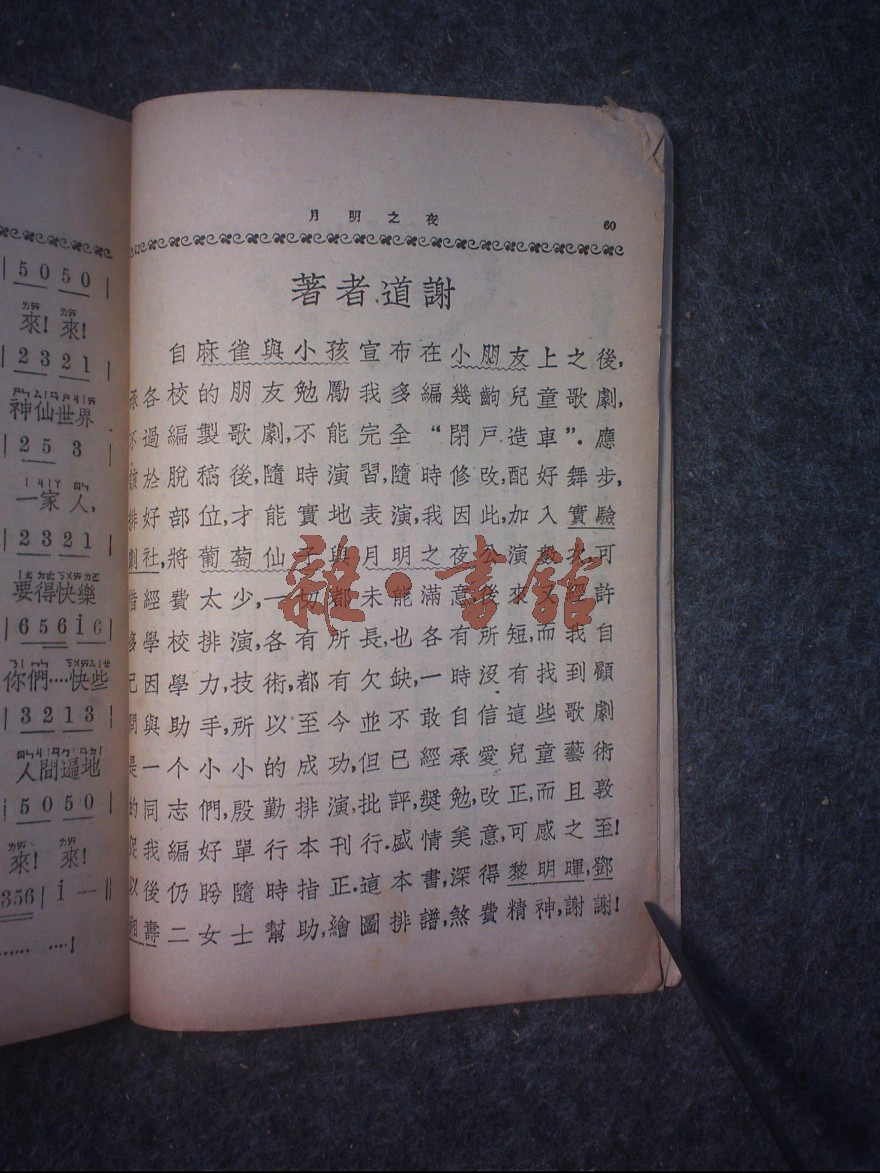 | 5 0 5 0 |
ㄌㄞ ㄌㄞ
來! 來!
| 2 3 2 1 |
神仙世界
2 5 3 |
一家人,
| 2 3 2 1 |
要得快樂
| 6 5 6 i 6 |
你們‥‥快些
| 3 2 1 3 |
人間遍地
| 5 0 5 0 |
ㄌㄞ ㄌㄞ
來! 來!
356 | i — ||
…… ‥‥!
月明之夜 60
著者道謝
自麻雀與小孩宣布在小朋友上之後,
各校的朋友勉勵我多編幾齣兒童歌劇,
不過編製歌劇,不能完全“閉戶造車”.應
該於脫稿後,隨時演習,隨時修改,配好舞步,
排好部位,才能實地表演,我因此,加入實驗
劇社,將葡萄仙子與月明之夜公演數次可
惜經費太少,一切都未能滿意後來又經許
多學校排演,各有所長,也各有所短,而我自
己因學力,技術,都有欠缺,一時沒有找到顧
問與助手,所以至今並不敢自信這些歌劇
是一个小小的成功,但已經承愛兒童藝術
的同志們,殷勤排演,批評,獎勉,改正,而且敦
促我編好單行本刊行.盛情美意,可感之至!
以後仍盼隨時指正.這本書,深得黎明暉,鄧
湘壽二女士幫助,繪圖排譜,煞費精神,謝謝!
雜·書館